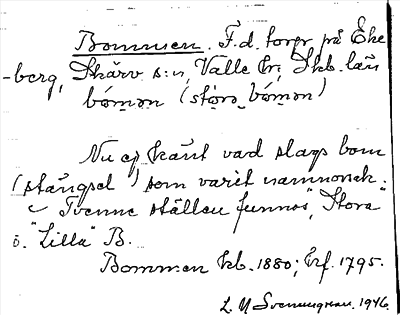 Bommen. F.d. torp på Eke
-berg, Skärv s:n, Valle hd, Skb. län
bómən (stóra bómən)
Nu ej känt vad slags bom
(stängsel) som varit namnorsk.
Tvenne ställen funnos, "Stora"
o. "Lilla" B.
Bommen kb. 1880; Hrf. 1795.
L. N Svenungsson. 1946.